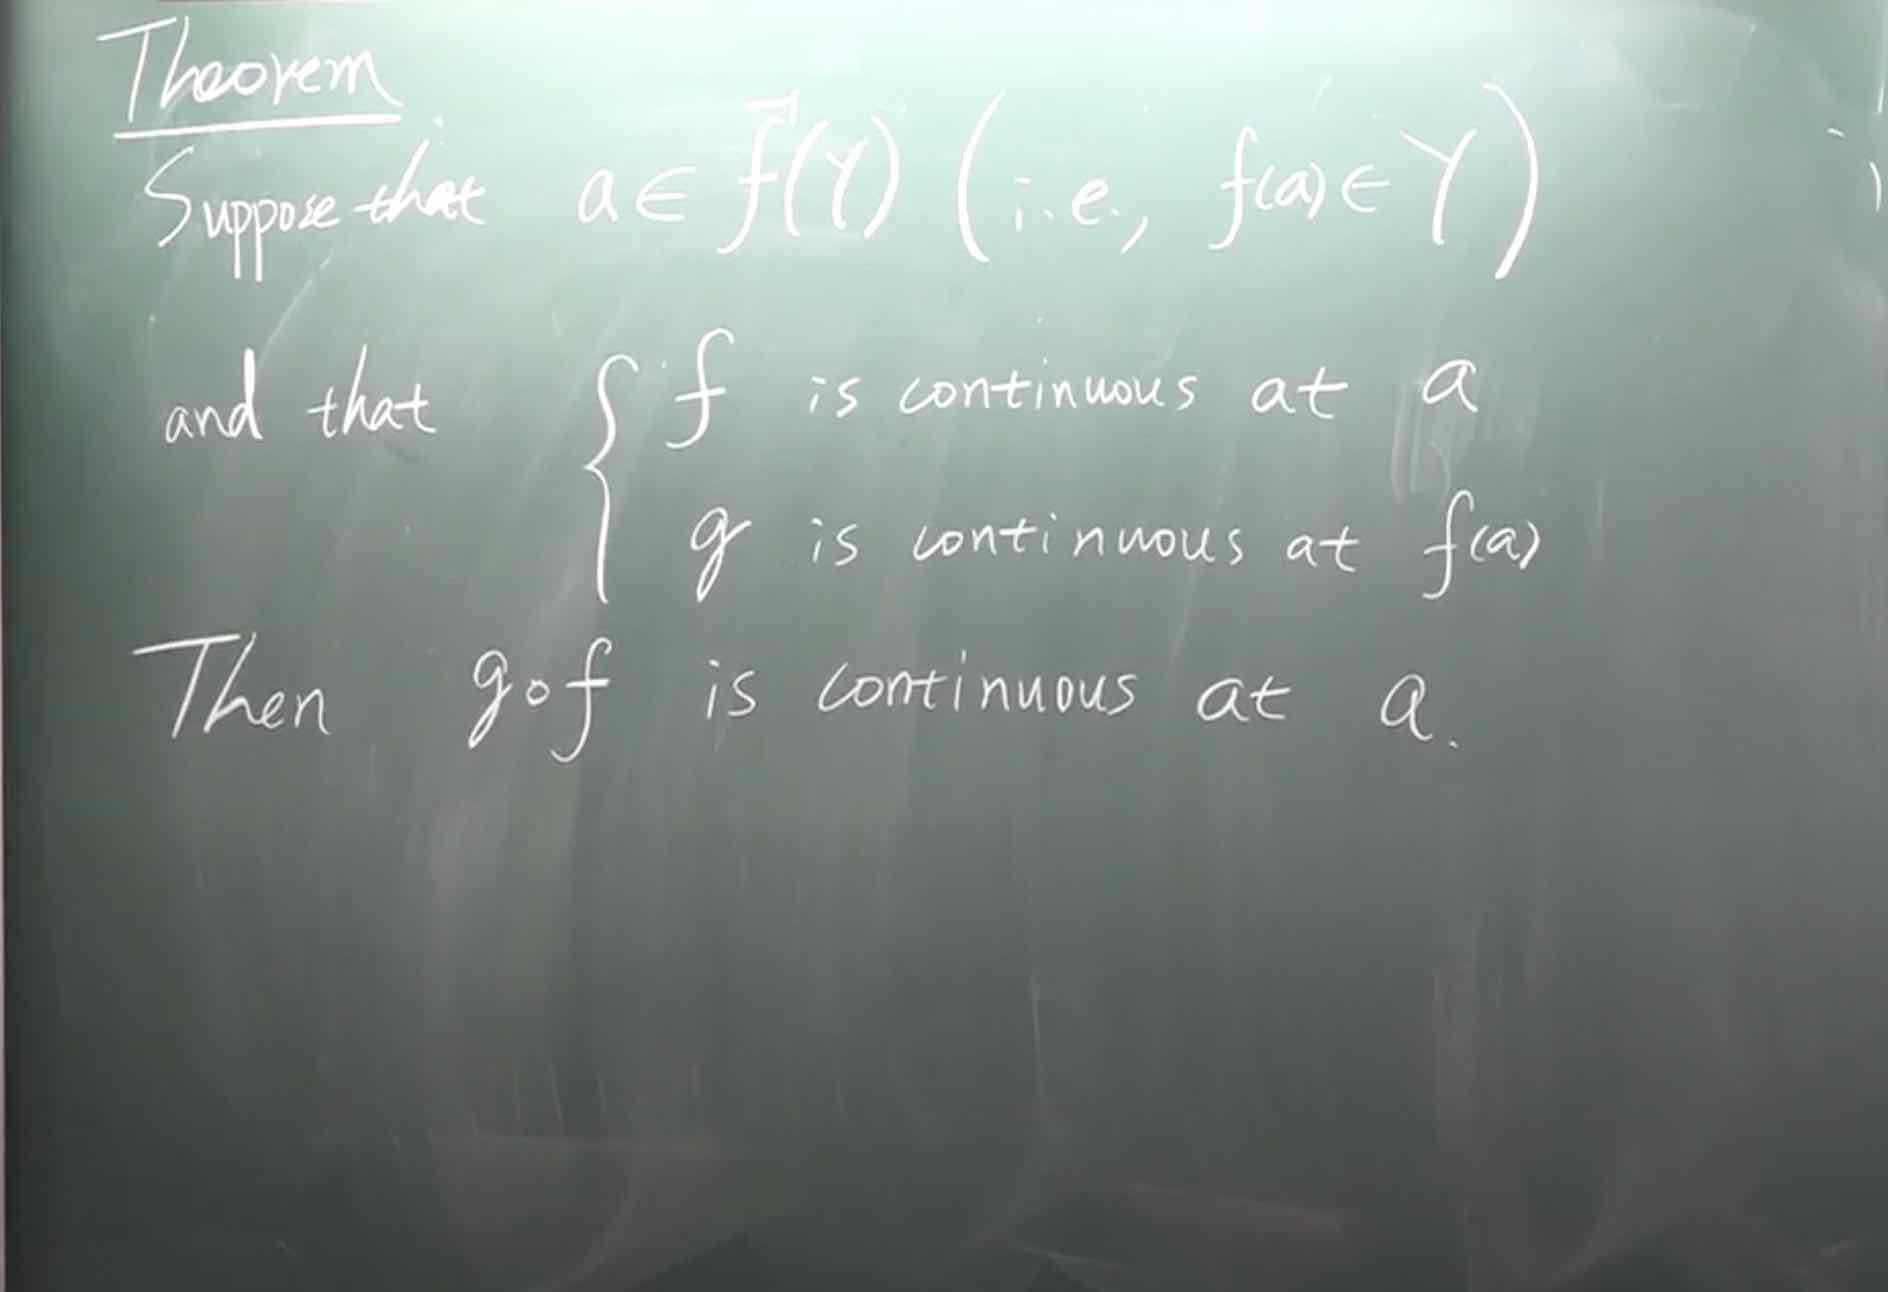 Theorem
Suppose that a ∈ f⁻¹(Y) (i.e., f(a) ∈ Y)
and that { f is continuous at a
g is continuous at f(a)
Then g∘f is continuous at a.